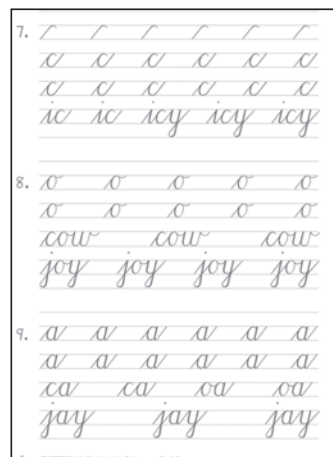 7.
c c c c c c
c c c c c c
ic ic icy icy icy
8. o o o o o
o o o o o
cow cow cow
joy joy joy joy
9. a a a a a a
a a a a a a
ca ca oa oa
jay jay jay